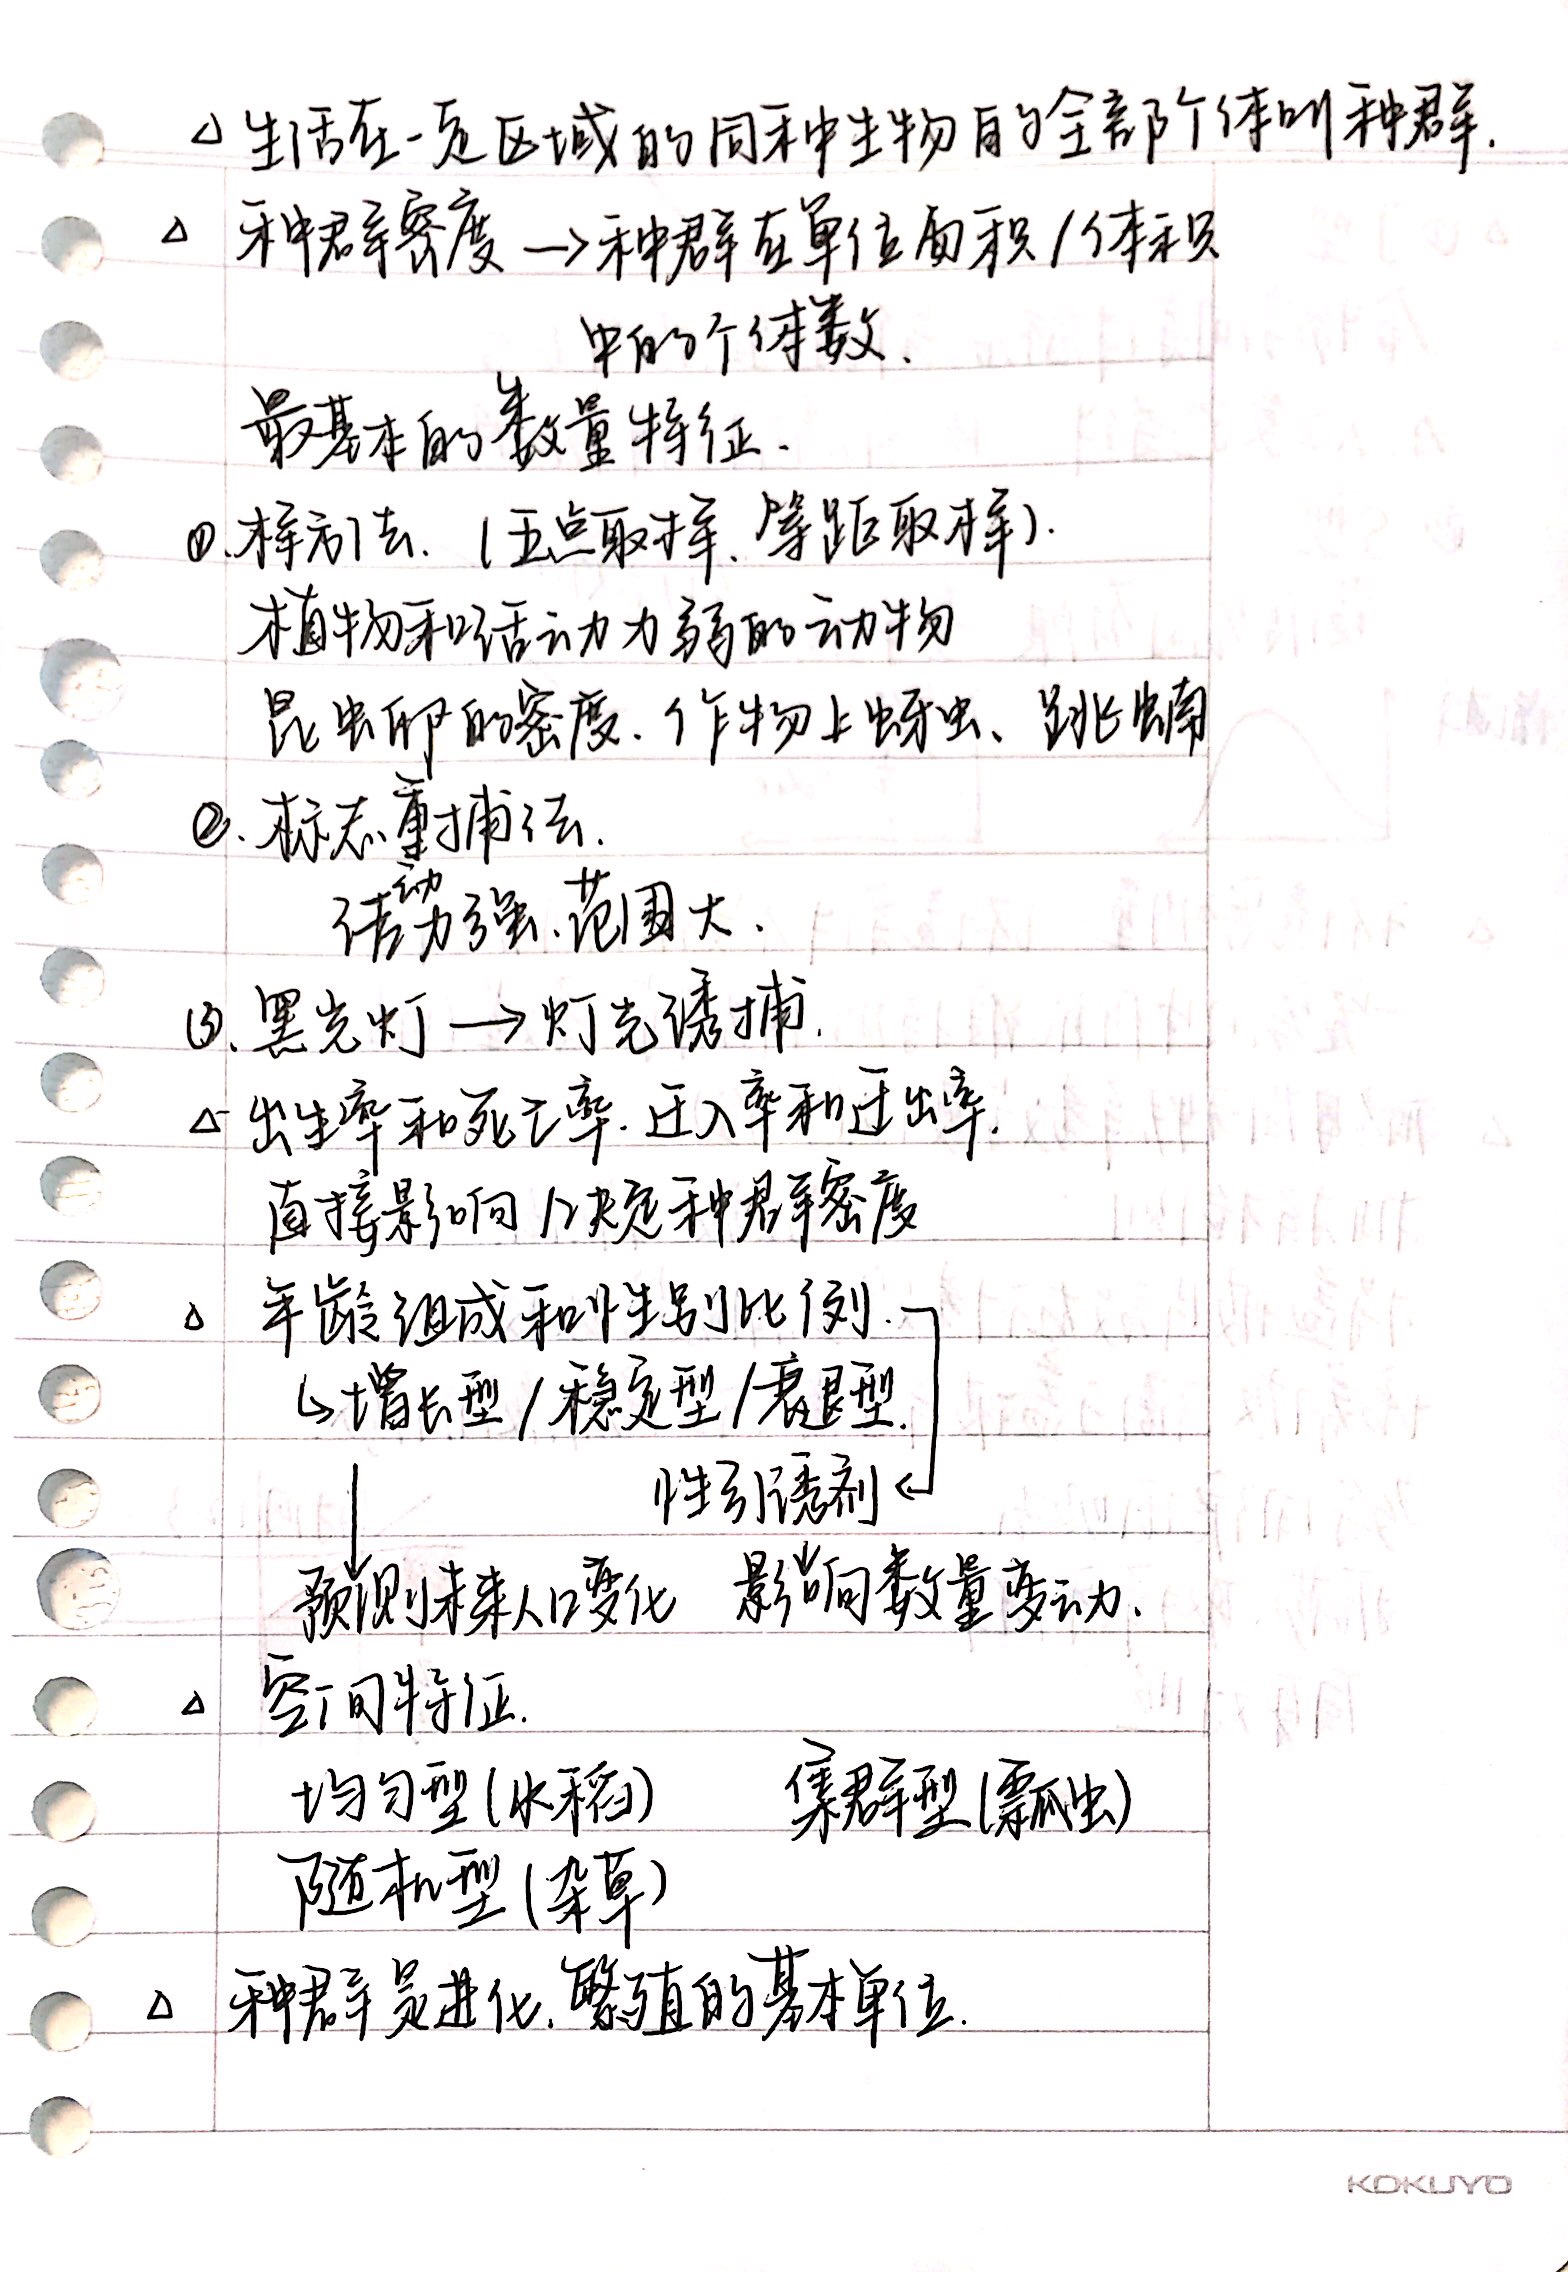 △生活在一定区域的同种生物的全部个体叫种群.
△ 种群密度→种群在单位面积/体积
中的个体数.
最基本的数量特征.
①.样方法.(五点取样、等距取样).
植物和活动力弱的动物
昆虫卵的密度.作物上蚜虫、跳蝻
②.标志重捕法.
活动力强.范围大.
③.黑光灯→灯光诱捕.
△出生率和死亡率.迁入率和迁出率.
直接影响/决定种群密度
△ 年龄组成和性别比例.
↳增长型/稳定型/衰退型.
性引诱剂
预测未来人口变化 影响数量变动.
△ 空间特征.
均匀型(水稻) 集群型(瓢虫)
随机型(杂草)
△ 种群是进化.繁殖的基本单位.
KOKUYO